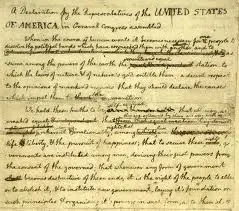 A Declaration by the Representatives of the UNITED STATES
OF AMERICA, in General Congress assembled.
When in the course of human events it becomes necessary for people to
dissolve the political bands which have connected them with another, and to
assume among the powers of the earth the station to
which the laws of nature & of nature's god entitle them, a decent respect
to the opinions of mankind requires that they should declare the causes
which impel them to the
We hold these truths to be that all men are
created equal
life & liberty, & the pursuit of happiness; that to secure these
governments are instituted among men, deriving their just powers from
the consent of the governed; that whenever any form of government
becomes destructive of these ends, it is the right of the people to alter
or to abolish it, & to institute new government, laying it's foundation on
such principles & organising it's powers in such form, as to